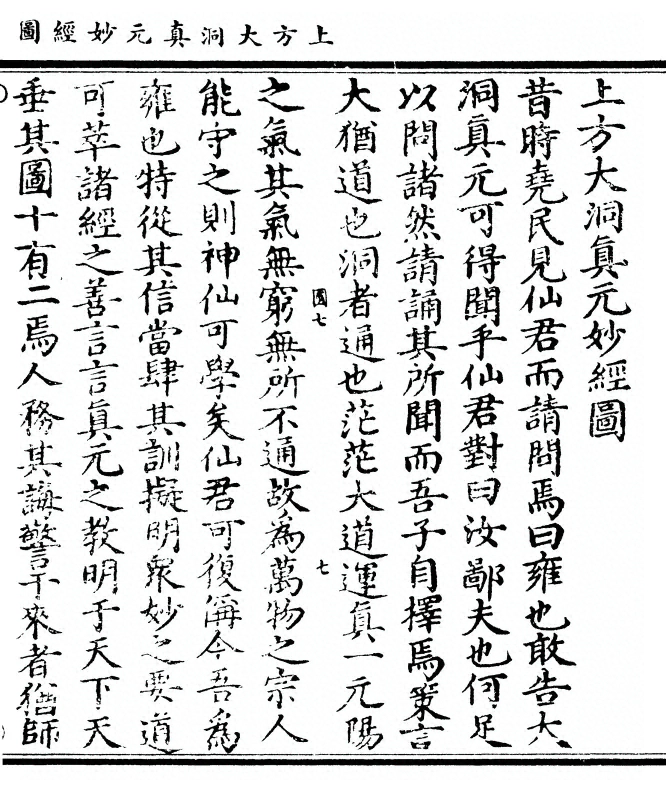 上方大洞真元妙經圖
上方大洞眞元妙經圖
昔時堯民見仙君而請問焉曰雍也敢告大
洞眞元可得聞乎仙君對曰汝鄙夫也何足
以問諸然請誦其所聞而吾子自擇焉策言
大猶道也洞者通也茫茫大道運眞一元陽
國七 七
之氣其氣無窮無所不通故爲萬物之宗人
能守之則神仙可學矣仙君可復偁今吾爲
雍也特從其信當肆其訓擬明衆妙之要道
可萃諸經之善言言眞元之教明于天下天
垂其圖十有二焉人務其誨警于來者猶師